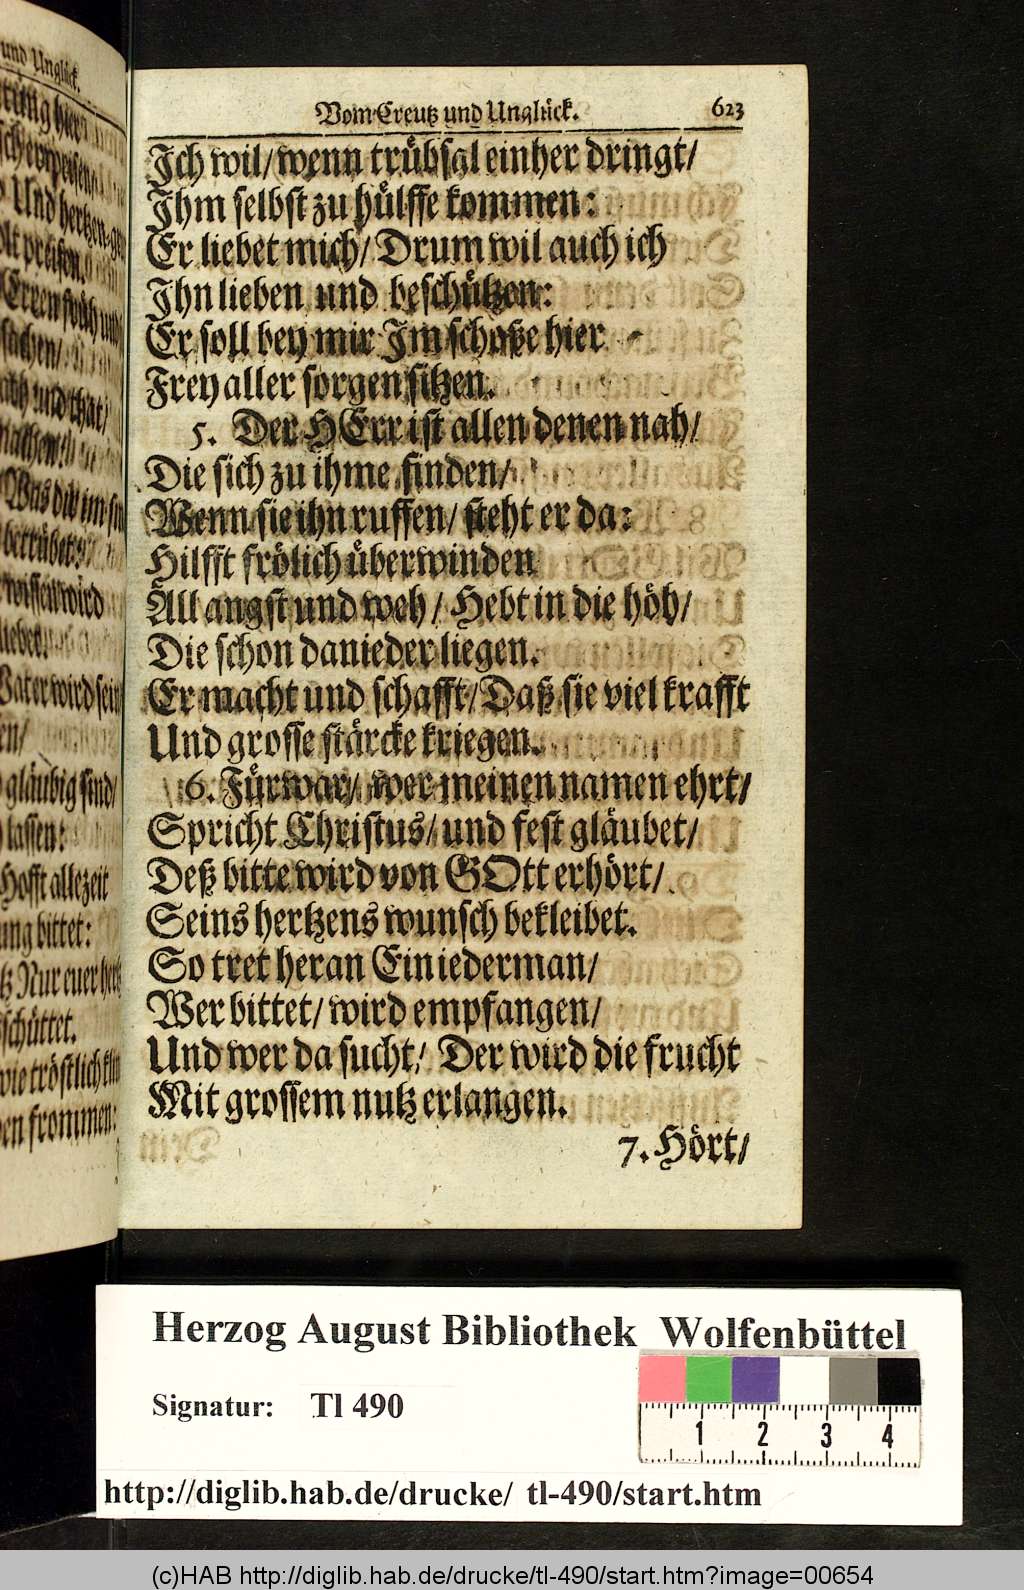 und Unglück.
Vom Creutz und Unglück. 623
Ich wil/ wenn trübsal einher dringt/
Ihm selbst zu hülffe kommen:
Er liebet mich/ Drum wil auch ich
Ihn lieben und beschützen:
Er soll bey mir Im schoße hier
Frey aller sorgen sitzen.
5. Der HErr ist allen denen nah/
Die sich zu ihme finden/
Wenn sie ihn ruffen/ steht er da:
Hilfft frölich überwinden
All angst und weh/ Hebt in die höh/
Die schon danieder liegen.
Er macht und schafft/ Daß sie viel krafft
Und grosse stärcke kriegen.
6. Fürwar/ wer meinen namen ehrt/
Spricht Christus/ und fest gläubet/
Deß bitte wird von GOtt erhört/
Seins hertzens wunsch bekleibet.
So tret heran Ein iederman/
Wer bittet/ wird empfangen/
Und wer da sucht/ Der wird die frucht
Mit grossem nutz erlangen.
7. Hört/
Herzog August Bibliothek Wolfenbüttel
Signatur: Tl 490
1 2 3 4
http://diglib.hab.de/drucke/ tl-490/start.htm
(c)HAB http://diglib.hab.de/drucke/tl-490/start.htm?image=00654